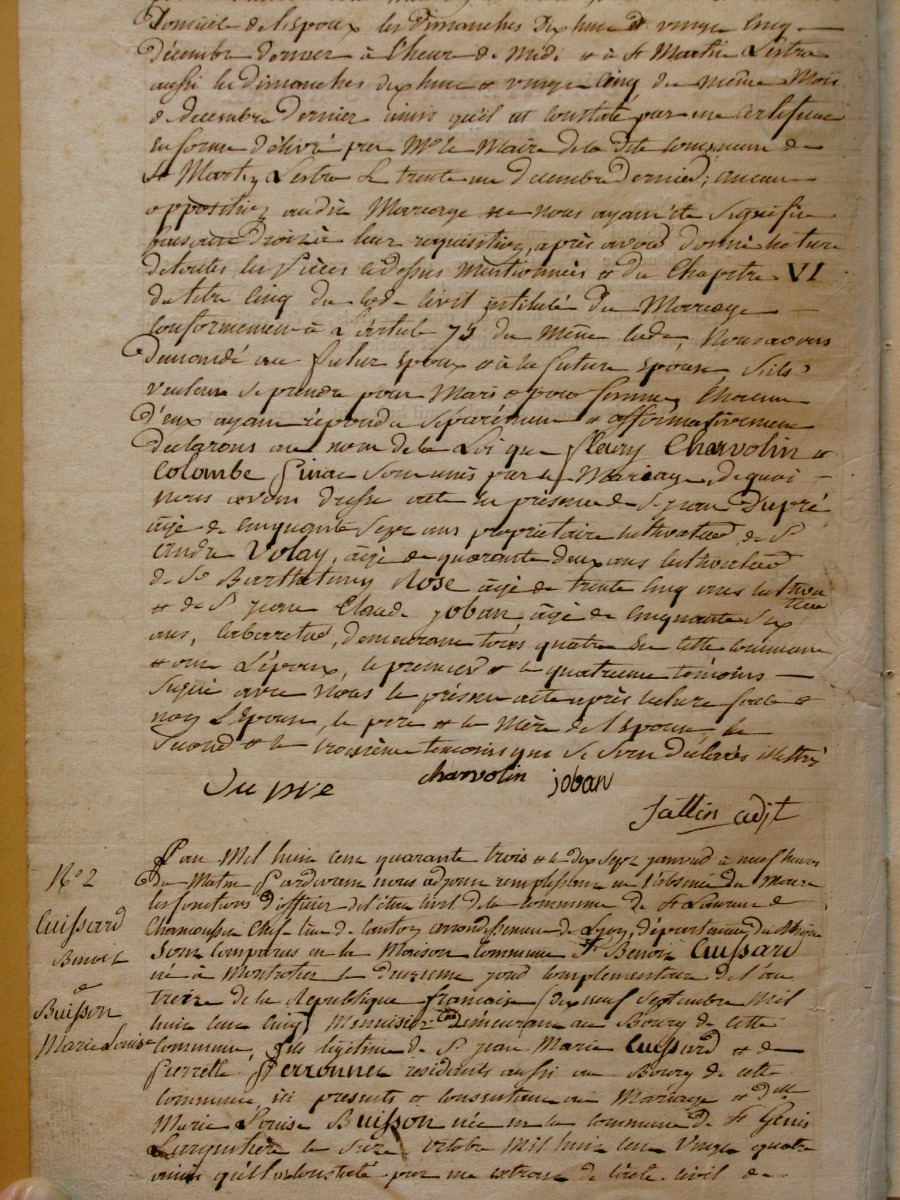 Domicile de l'époux les dimanches dix huit et vingt cinq
décembre dernier à l'heure de midi et à St Martin Lestra
aussi les dimanches dix huit et vingt cinq du même Mois
de décembre dernier ainsi qu'il est constaté par un certificat
en forme délivré par Mr le Maire de la dite commune de
St Martin Lestra le trente un décembre dernier; aucune
opposition audit Mariage ne nous ayant été signifiée
faisant Droit à leur requisition, après avoir donné lecture
de toutes les Pièces cidessus mentionnées et du Chapitre VI
du titre cinq du Code Civil intitulé du Mariage
Conformement à l'article 75 du même Code, Nous avons
Demandé au futur époux et à la future épouse s'ils
veulent se prendre pour Mari et pour femme, Chacun
D'eux ayant répondu séparément et affirmativement
Declarons au nom de la Loi que fleury Charvolin et
Colombe sont unis par le Mariage, de quoi
nous avons Dressé acte en présence de Sr jean Dupré
âgé de cinquante sept ans propriétaire cultivateur, de Sr
andré Volay, âgé de quarante deux ans cultivateur
de Sr Barthelemy Rose âgé de trente cinq ans cultiva
teur
et de Sr jean Claude joban, âgé de cinquante six
ans, cabaretier, demeurant tous quatre en cette commune
et ont L'époux, le premier et le quatrieme témoins
signé avec Nous le présent acte après lecture faite et
non L'épouse, le père et la Mère de l'epoux, le
second et le troisième temoins que se sont déclarés illettrés
Dupré charvolin joban
adjt
N° 2
Cuissard
Benoit
et
Buisson
Marie Louise
L'an Mil huit cent quarante trois et le dix sept janvier à neuf heures
Du Matin Pardevant nous adjoint remplissant en l'absence du Maire
les fonctions d'officier de l'état civil de la commune de St Laurent de
Chamousset Chef-lieu de Canton arrondissement de Lyon, département du Rhône
Sont Comparus en la Maison Commune Sr Benoit Cuissard
né à Montrotier le deuxieme jour complementaire de l'an
treize de la République francaise (dix neuf Septembre Mil
huit cent cinq) Menuisier demeurant au Bourg de cette
Commune, fils légitime de Sr jean Marie Cuissard et de
Pierrette Perronnet residents aussi au Bourg de cette
commune, ici présents et consentant au Mariage et Dlle
Marie Louise Buisson née en la commune de St Genis
Largentière le seize octobre Mil huit cent vingt quatre
ainsi qu'il est constaté par un extrait de l'acte civil de